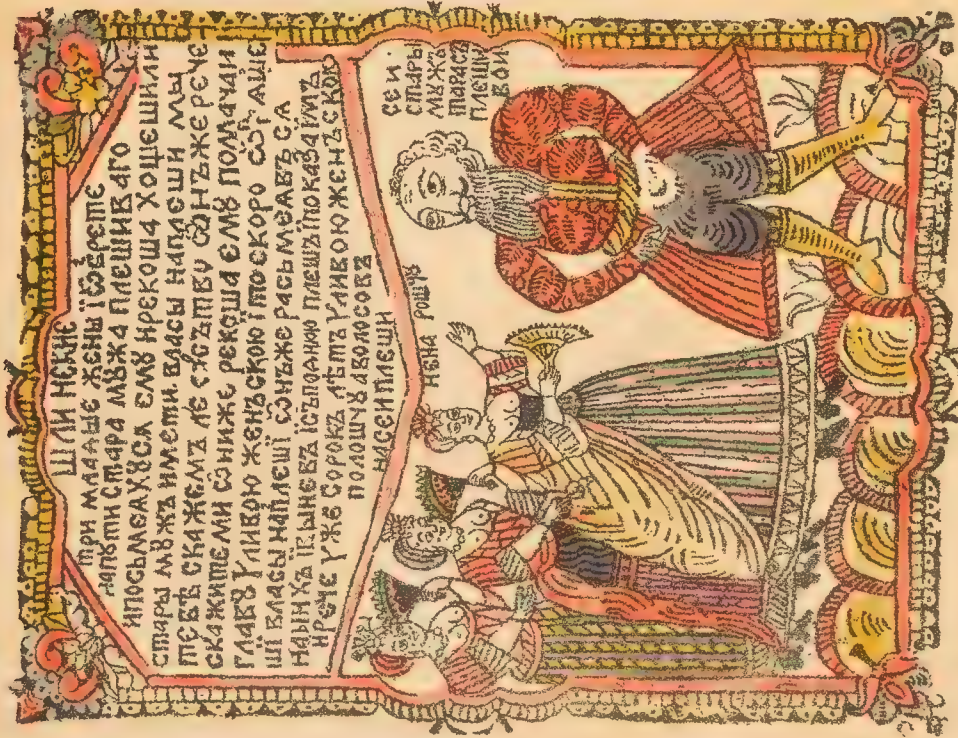 ШЛИ НЕКИЕ
ТРИ МЛАДЫЕ ЖЕНЫ ІѠБРЕТЕ
СТАРА МꙊЖА ПЛЕШИВАГО
ИПОСЬМЕАХꙊСА ЕМꙊ НРЕКОША ХОШЕШИЛИ
СТАРЫ МꙊЖЪ ИМЕТИ ВЛАСЫ НАПЛЕШИ МЫ
ТЕБѢ СКАЖЕМЪ ЛЕ ѠНЪЖЕ РЕЧЕ
СКАЖИТЕ МИ ѠНИЖЕ РЕКОША ЕМꙊ ПОМАЧАИ
ГЛАВꙊ УЛИВОЮ ЖЕНЪСКОЮ ІТОСКОРО
ВЛАСЫ НАПЛЕШІ ѠНЪЖЕ РАСЬМЕАВЪ СА
НАНИХЪ ІВЫНЕВЪ ІСЪПОЛНЮ ПЛЕШЪ ІПОКАЗА ИМЪ
НРЕЧЕ УЖЕ СОРОКЪ ЛѢТЪ УЛИВОЮ ЖЕНЪСКОЮ
ПОЛОЩУ АВОЛОСОВЪ
НСЕИ ПЛЕШИ
НЕНА РОЩУ
СЕИ
СТАРЫ
МꙊЖЪ
ТАРАСЪ
ПЛЕШИ
ВОИ